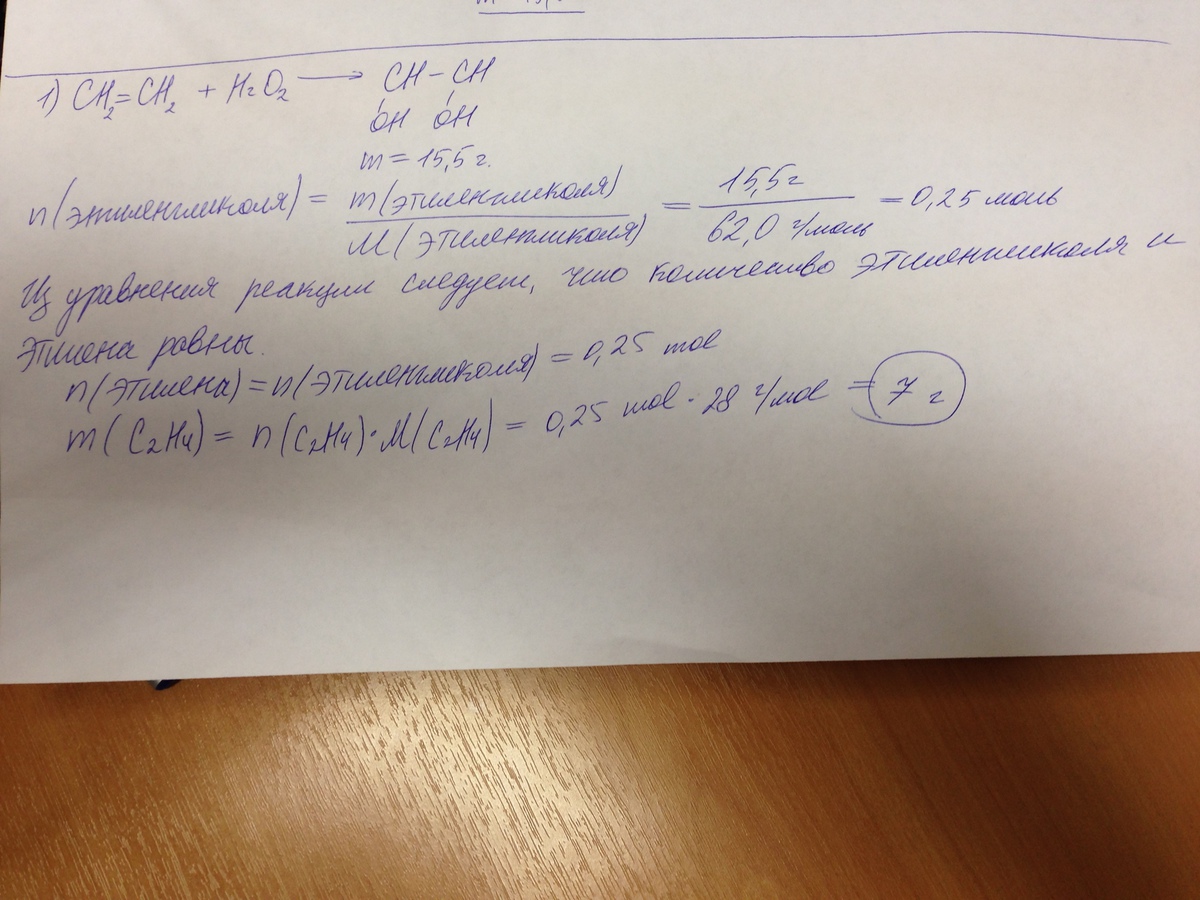 1) CH₂=CH₂ + H₂O₂ ⟶ CH – CH
OH OH
m = 15,5 г.
n(этиленгликоля) = m(этиленгликоля) / M(этиленгликоля) = 15,5 г / 62,0 г/моль = 0,25 моль
Из уравнения реакции следует, что количество этиленгликоля и
этилена равны.
n(этилена) = n(этиленгликоля) = 0,25 mol
m(C₂H₄) = n(C₂H₄)·M(C₂H₄) = 0,25 mol · 28 г/mol = 7 г